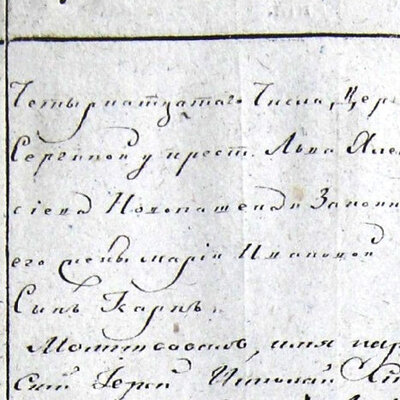 Четырнатцатаго Числа, Цер
Сергиной у крест. Льва Але
сіева Новопашенаи Законн
его жены маріи Ивановой
Сынъ Карпъ.
Молитвовалъ, имя нар
Іерей Николай